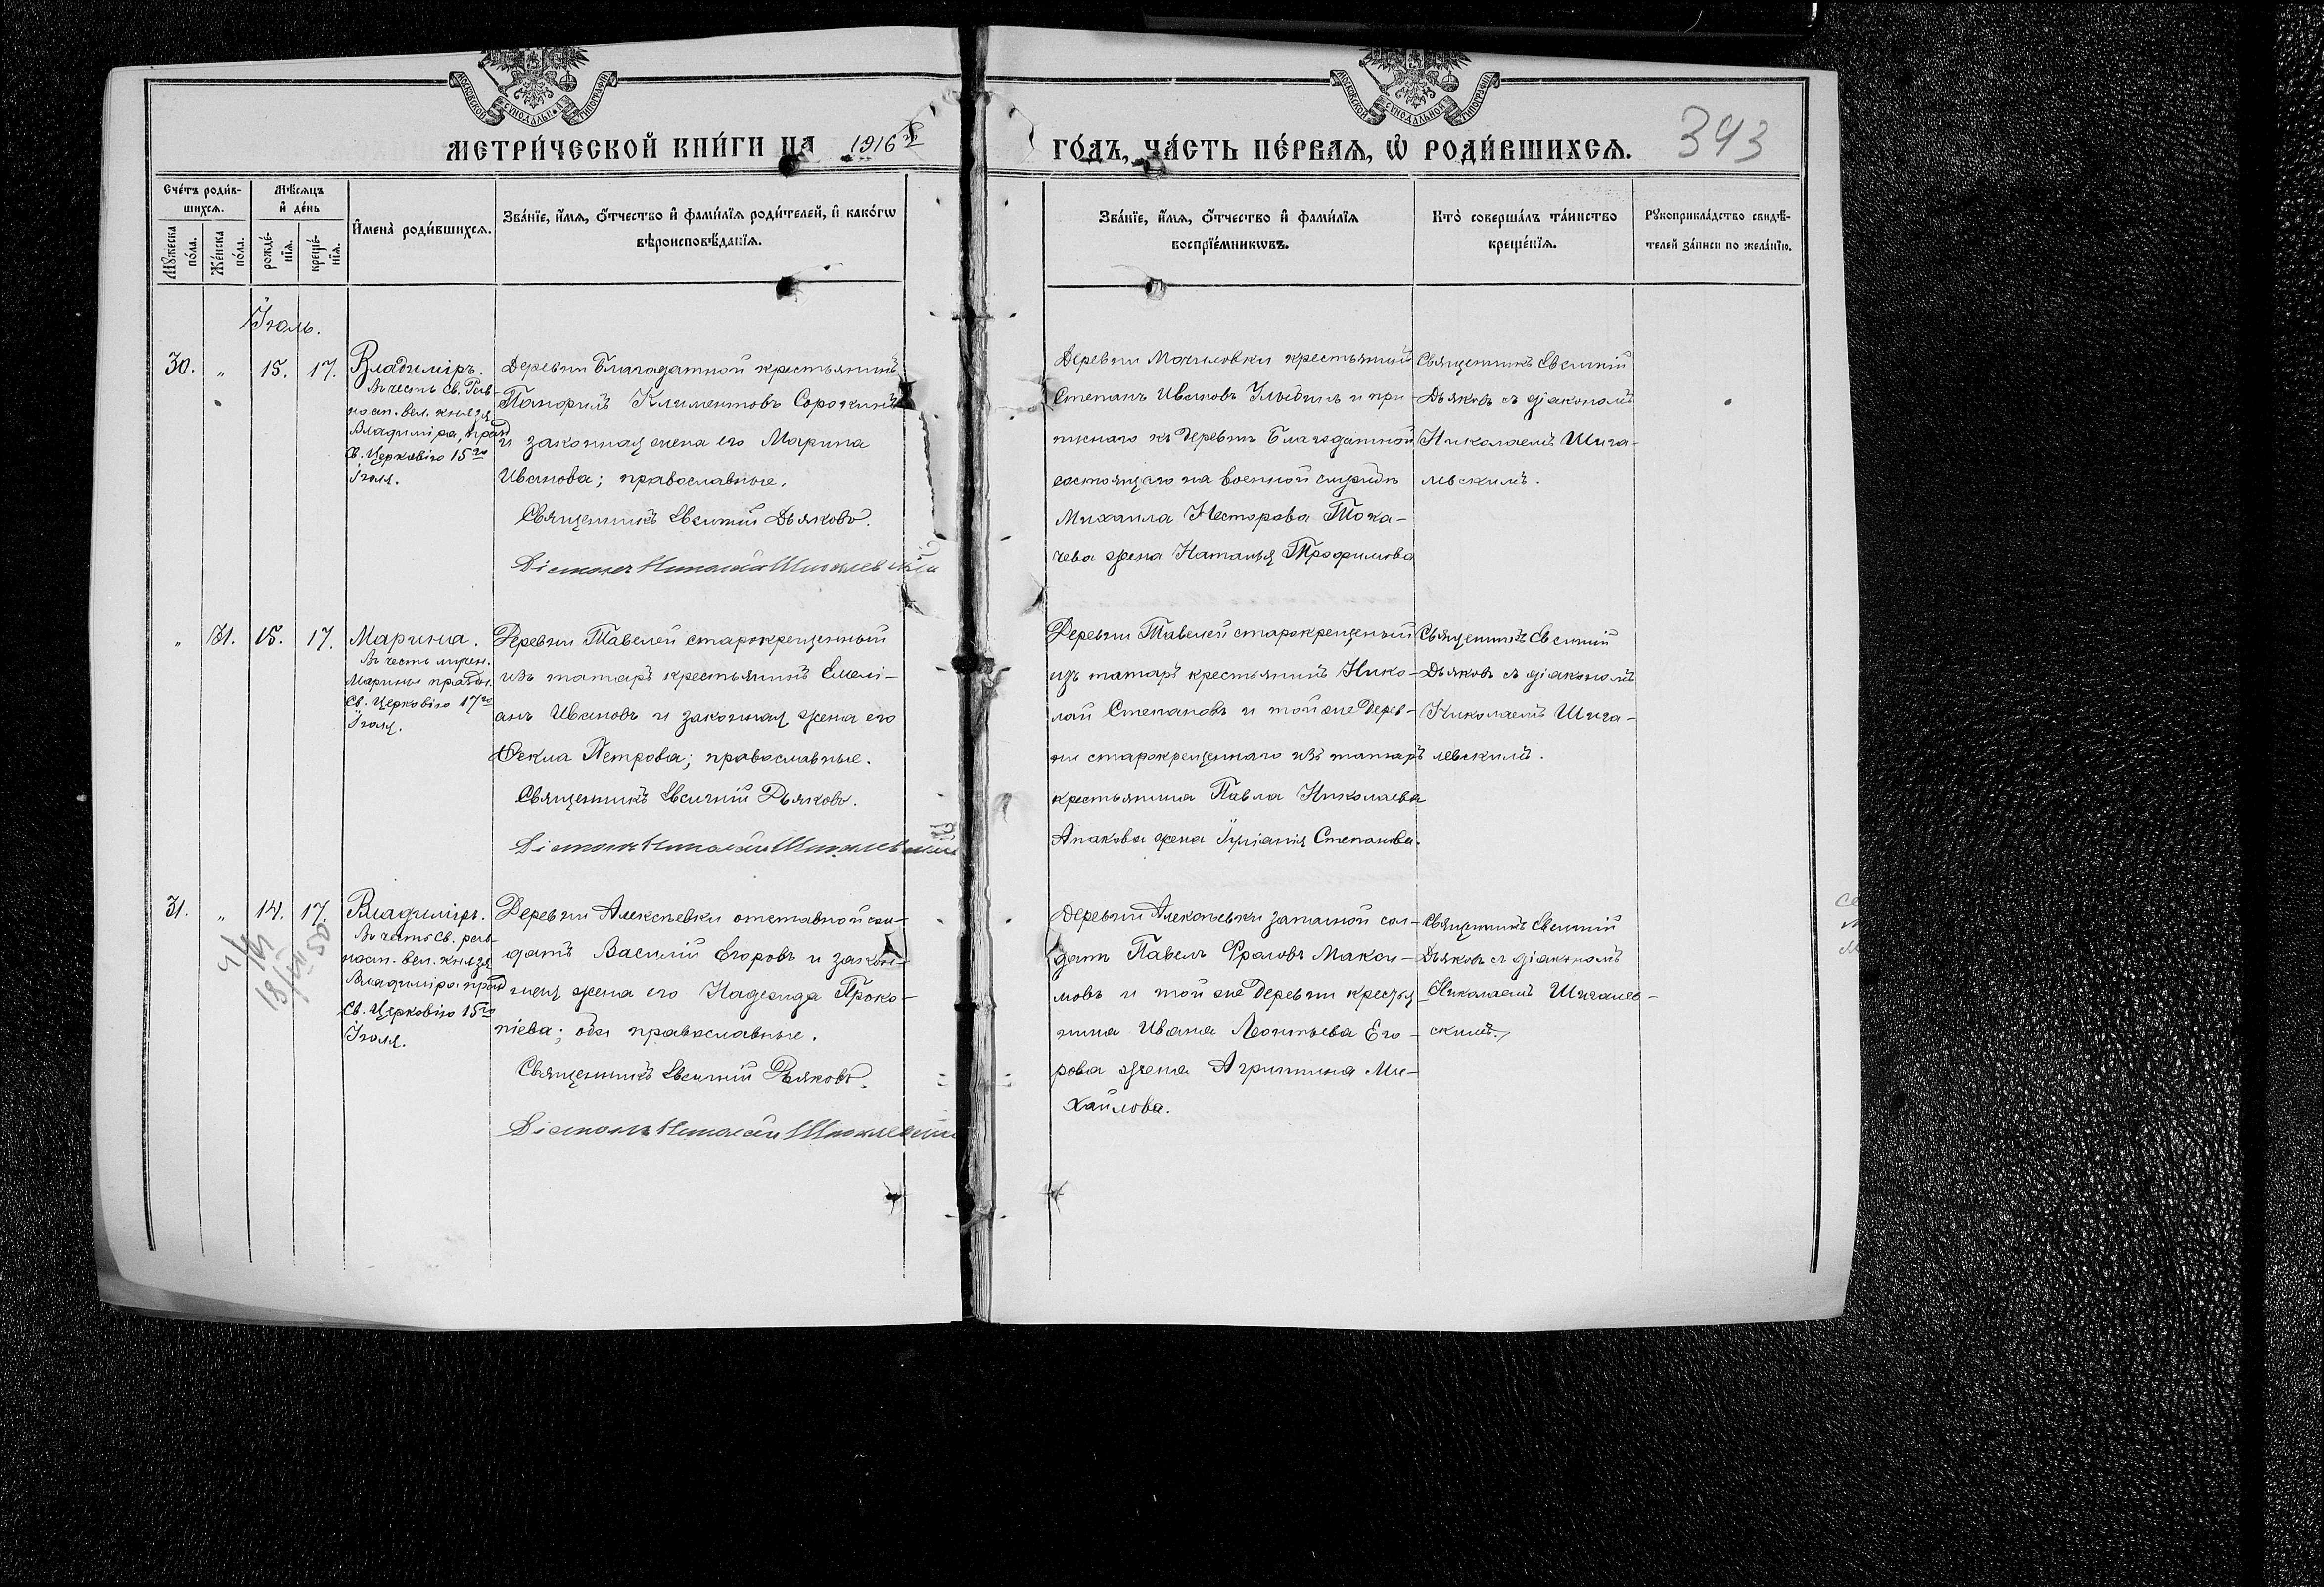 МОСКОВСКОЙ СУНОДАЛЬНОЙ ТИПОГРАФІИ
МОСКОВСКОЙ СУНОДАЛЬНОЙ ТИПОГРАФІИ
МЕТРИ́ЧЕСКОЙ КНИ́ГИ НА 1916й
ГО́ДЪ, ЧА́СТЬ ПЕ́РВАѦ, Ѡ РОДИ́ВШИХСѦ. 343
Сче́тъ роди́в-
шихсѧ.
Мꙋжеска по́ла.
Же́нска по́ла.
Мѣ́сѧцъ
и҆ де́нь
рожде́-
нїѧ.
креще́-
нїѧ.
И҆мена̀ роди́вшихсѧ.
Зва́нїе, и҆́мѧ, ѻ҆́тчество и҆ фами́лїѧ роди́телей, и҆ како́гѡ
вѣроисповѣ́данїѧ.
Зва́нїе, и҆́мѧ, ѻ҆́тчество и҆ фами́лїѧ
воспрїе́мникѡвъ.
Кто̀ соверша́лъ та́инство
креще́нїѧ.
Рꙋкоприкла́дство свидѣ́-
телей за́писи по жела́нїю.
Іюль.
30. " 15. 17.
Владиміръ.
Въ честь Св. Рав-
ноап. вел. князя
Владиміра, празд
Св. Церковію 15го
Іюля.
Деревни Благодатной крестьянинъ
Панфилъ Климентовъ Сорокинъ
и законная жена его Марина
Иванова; православные.
Священникъ Евсигній Дьяковъ.
Діаконъ Николай Шигалевскій
Деревни Мочиловки крестьянинъ
Степанъ Ивановъ и при-
писнаго къ деревнѣ Благодатной
состоящаго на военной службѣ
Михаила Нестерова Тока-
чева жена Наталья Трофимова
Священникъ Евсигній
Дьяковъ съ діакономъ
Николаемъ Шига-
левскимъ.
" 31. 15. 17.
Марина.
Въ честь мучен.
Марины праздн.
Св. Церковію 17го
Іюля.
Деревни Тавелей старокрещенный
изъ татаръ крестьянинъ Емелі-
анъ Ивановъ и законная жена его
Ѳекла Петрова; православные.
Священникъ Евсигній Дьяковъ.
Діаконъ Николай Шигалевскій
Деревни Тавелей старокрещеный
изъ татаръ крестьянинъ Нико-
лай Степановъ и той же дерев-
ни старокрещеннаго изъ татаръ
крестьянина Павла Николаева
Апакова жена Іуліанія Степанова.
Священникъ Евсигній
Дьяковъ съ діакономъ
Николаемъ Шига-
левскимъ.
31. " 14. 17.
Владиміръ.
Въ честь Св. рав-
ноап. вел. князя
Владиміра празд
Св. Церковію 15го
Іюля.
Деревни Алексѣевки отставной сол-
датъ Василій Егоровъ и закон-
ная жена его Надежда Проко-
піева; оба православные.
Священникъ Евсигній Дьяковъ.
Діаконъ Николай Шигалевскій
Деревни Алексѣевки запасной сол-
датъ Павелъ Фроловъ Макси-
мовъ и той же деревни крестья
нина Ивана Леонтьева Его-
рова жена Агриппина Ми-
хайлова.
Священникъ Евсигній
Дьяковъ съ діакономъ
Николаемъ Шигалев-
скимъ.